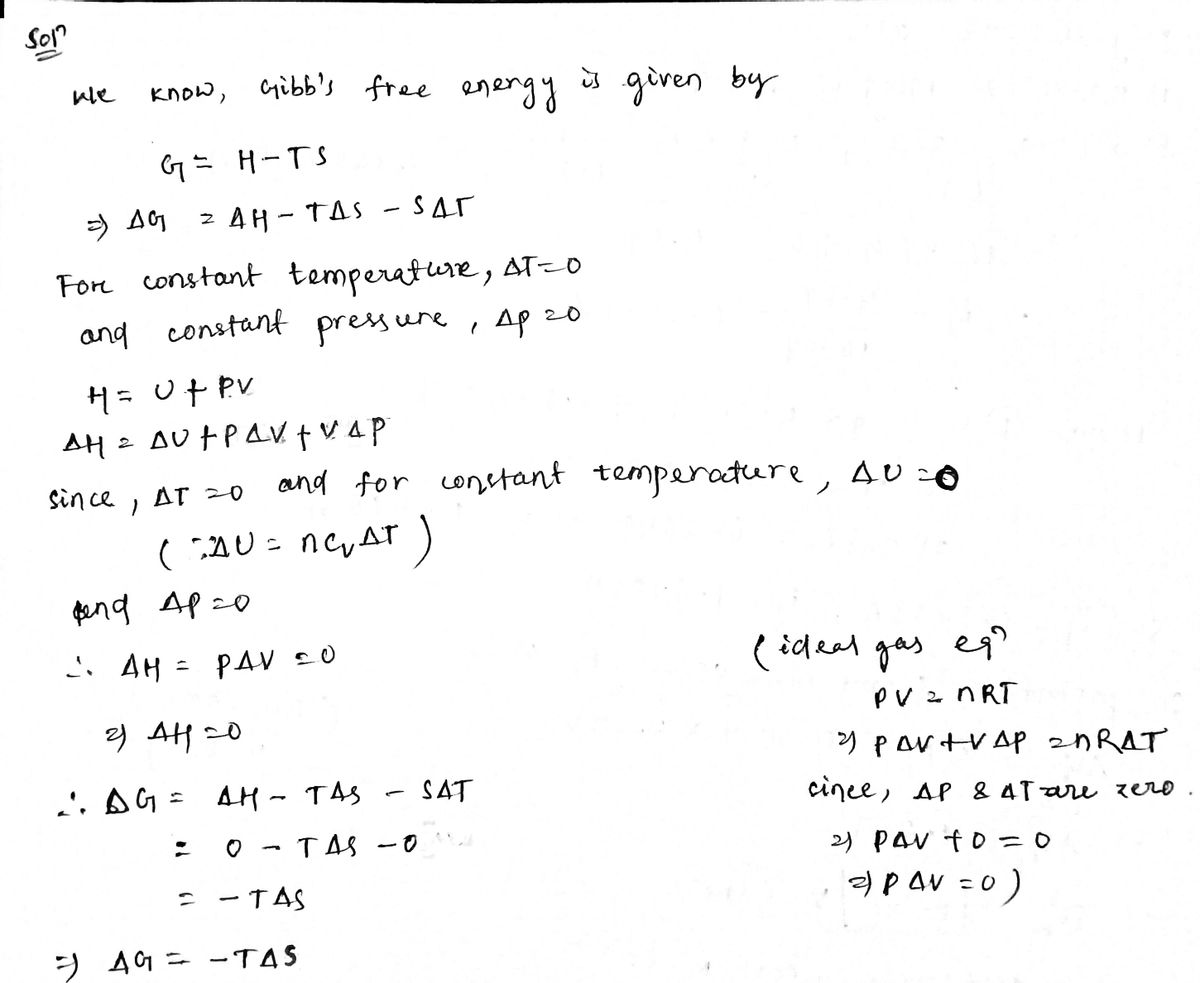 Solⁿ
We know, Gibb's free energy is given by
G = H - TS
⇒ ΔG = ΔH - TΔS - SΔT
For constant temperature, ΔT=0
and constant pressure, Δp=0
H = U + PV
ΔH = ΔU + PΔV + VΔP
Since, ΔT=0 and for constant temperature, ΔU=0
(∵ΔU = nCᵥΔT)
and ΔP=0
∴ ΔH = PΔV = 0
⇒ ΔH=0
∴ ΔG = ΔH - TΔS - SΔT
= 0 - TΔS - 0
= - TΔS
⇒ ΔG = -TΔS
(ideal gas eqⁿ
PV = nRT
⇒ PΔV+VΔP = nRΔT
cince, ΔP & ΔT are zero.
⇒ PΔV + 0 = 0
⇒ PΔV = 0)